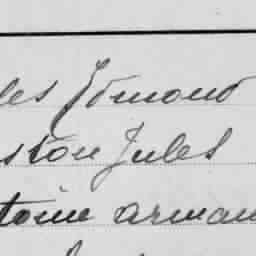 les Edmond
ston Jules
toine arman